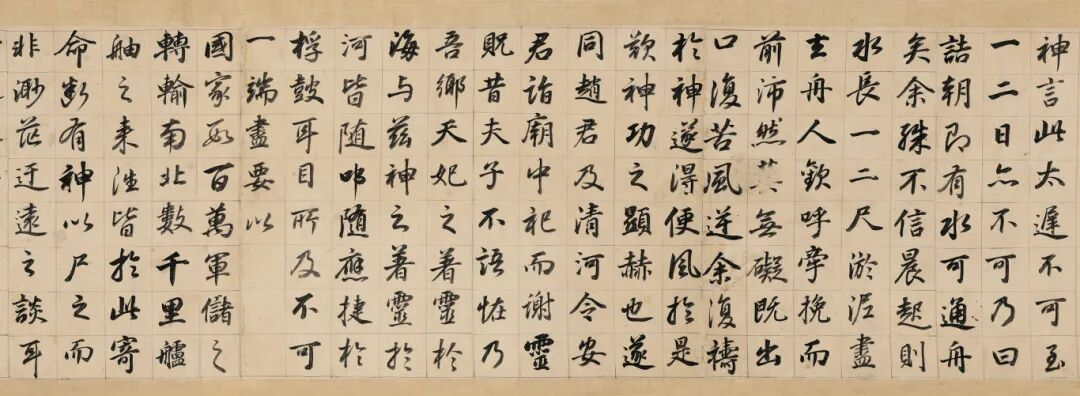 神言此太遲不可至
一二日亦不可乃曰
詰朝即有水可通舟
矣余殊不信晨起則
水長一二尺淤泥盡
去舟人歡呼牽挽而
前沛然其無礙既出
口復苦風逆余復禱
於神遂得便風於是
歎神功之顯赫也遂
同趙君及清河令安
君詣廟中祀而謝靈
貺昔夫子不語怪乃
吾鄉天妃之著靈於
海与茲神之著靈於
河皆随叩随應捷於
桴鼓耳目所及不可
一端盡要以
國家數百萬軍儲之
轉輸南北數千里艫
舳之来往皆於此寄
命斷有神以尸之而
非渺茫迂遠之談耳